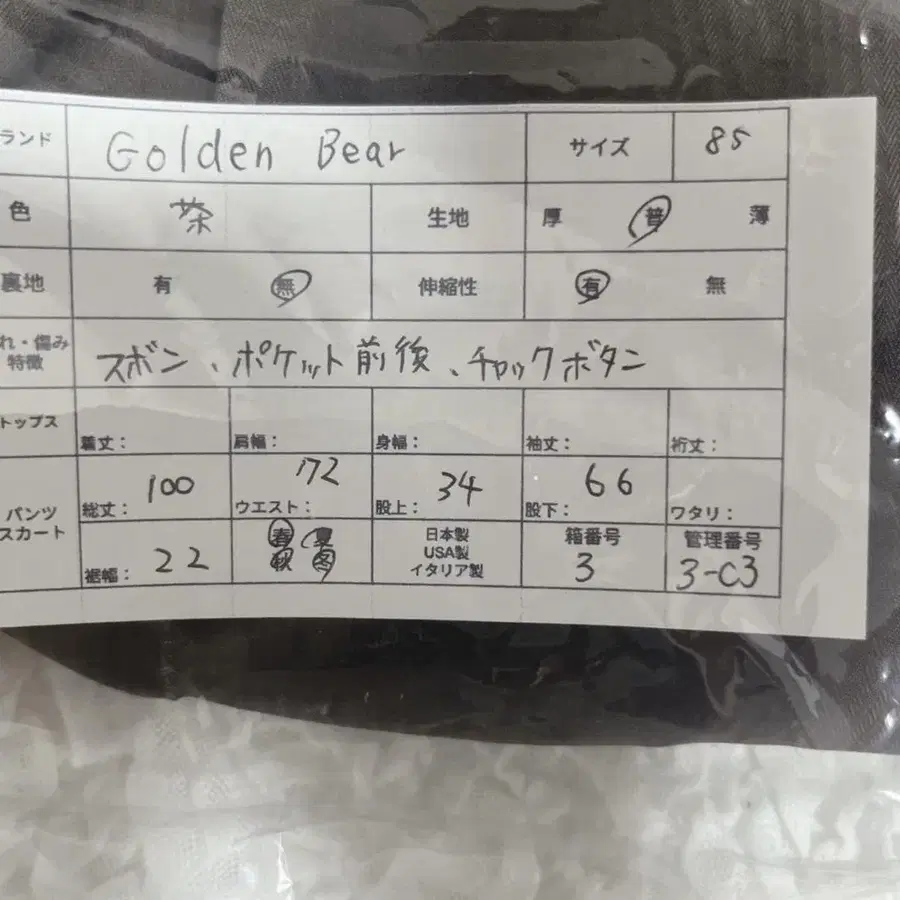 ランド Golden Bear サイズ 85
色 茶 生地 厚 普 薄
裏地 有 無 伸縮性 有 無
れ・傷み
特徴
スボン、ポケット前後、チャックボタン
トップス 着丈: 肩幅: 身幅: 袖丈: 裄丈:
パンツ
スカート
総丈: 100 ウエスト: 股上: 34 股下: 66 ワタリ:
裾幅: 22
春 夏
秋 冬
日本製
USA製
イタリア製
箱番号
3
管理番号
3-C3